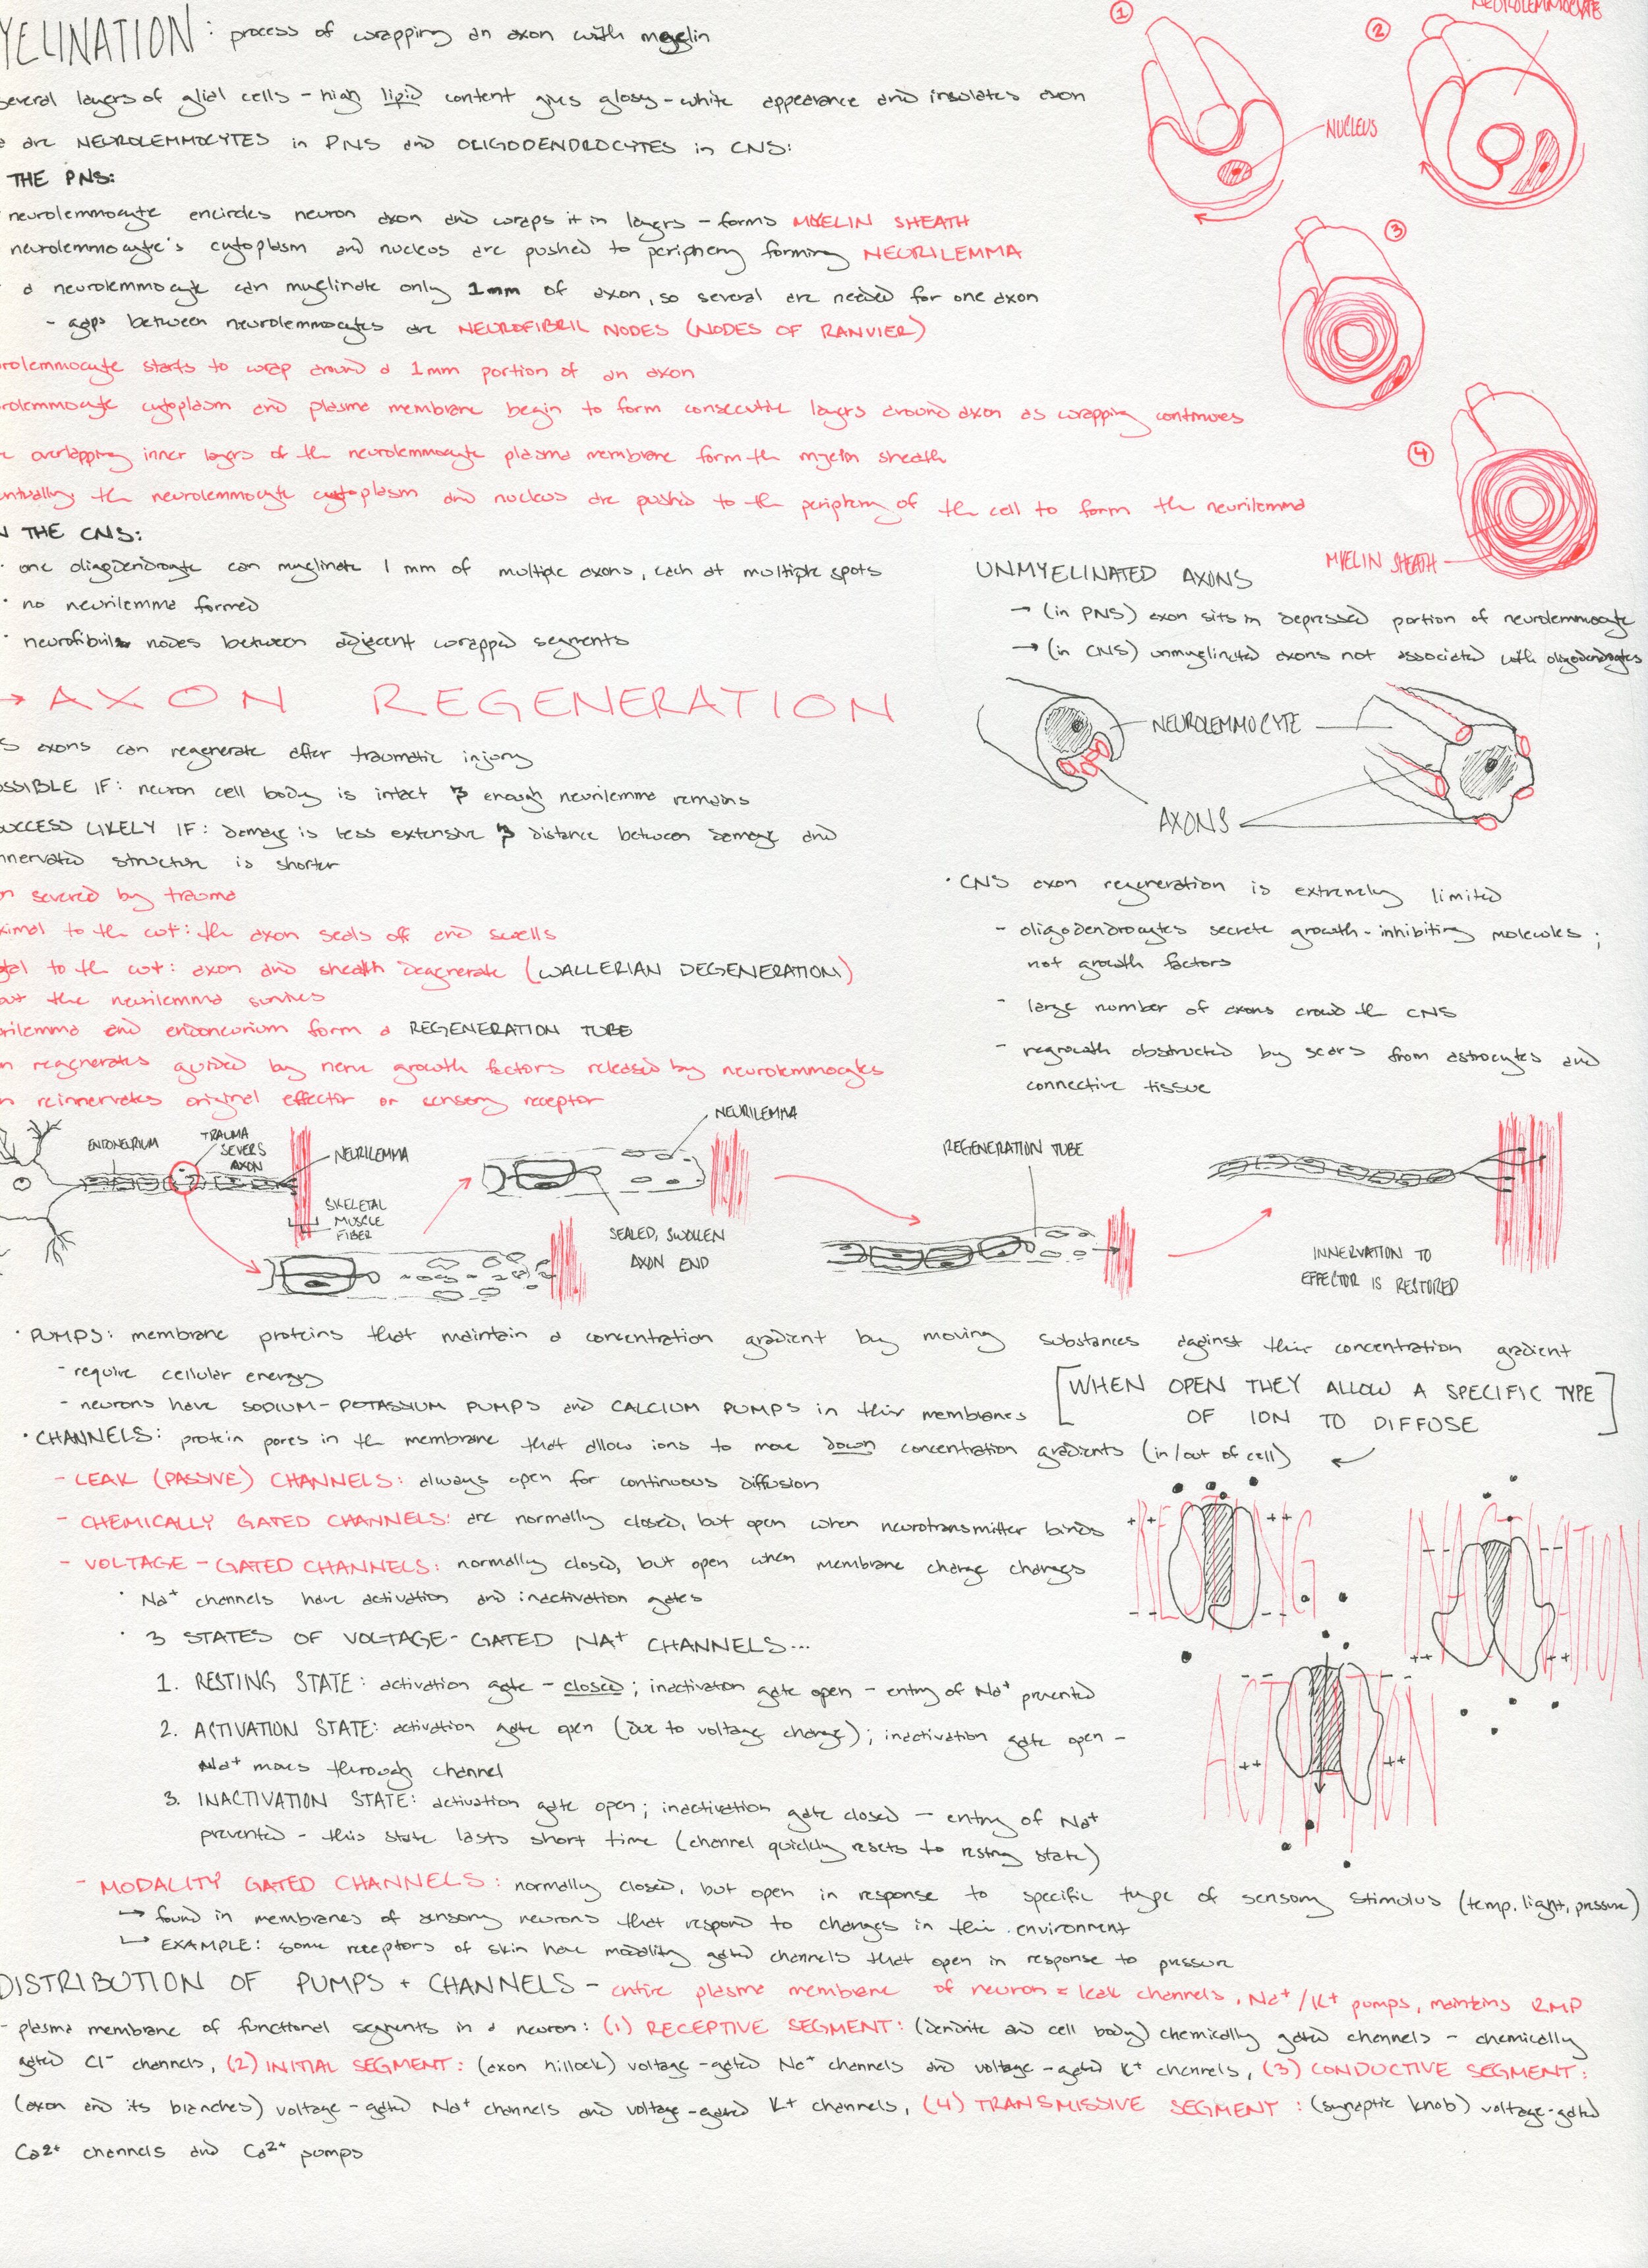 YELINATION: process of wrapping an axon with myelin
several layers of glial cells - high lipid content gives glossy-white appearance and insulates axon
are NEUROLEMMOCYTES in PNS and OLIGODENDROCYTES in CNS:
THE PNS:
neurolemmocyte encircles neuron axon and wraps it in layers - forms MYELIN SHEATH
neurolemmocyte's cytoplasm and nucleus are pushed to periphery forming NEURILEMMA
a neurolemmocyte can myelinate only 1mm of axon, so several are needed for one axon
- gaps between neurolemmocytes are NEUROFIBRIL NODES (NODES OF RANVIER)
rolemmocyte starts to wrap around a 1mm portion of an axon
rolemmocyte cytoplasm and plasma membrane begin to form consecutive layers around axon as wrapping continues
overlapping inner layers of the neurolemmocyte plasma membrane form the myelin sheath
entually the neurolemmocyte cytoplasm and nucleus are pushed to the periphery of the cell to form the neurilemma
1
2
NEUROLEMMOCYTE
NUCLEUS
3
4
MYELIN SHEATH
N THE CNS:
· one oligodendrocyte can myelinate 1 mm of multiple axons, each at multiple spots
· no neurilemma formed
· neurofibril nodes between adjacent wrapped segments
UNMYELINATED AXONS
→ (in PNS) axon sits in depressed portion of neurolemmocyte
→ (in CNS) unmyelinated axons not associated with oligodendrocytes
NEUROLEMMOCYTE
AXONS
→ AXON REGENERATION
S axons can regenerate after traumatic injury
OSSIBLE IF: neuron cell body is intact & enough neurilemma remains
UCCESS LIKELY IF: damage is less extensive & distance between damage and
nnervated structure is shorter
n severed by trauma
ximal to the cut: the axon seals off and swells
tal to the cut: axon and sheath degenerate (WALLERIAN DEGENERATION)
out the neurilemma survives
rilemma and endoneurium form a REGENERATION TUBE
n regenerates guided by nerve growth factors released by neurolemmocytes
n reinnervates original effector or sensory receptor
· CNS axon regeneration is extremely limited
- oligodendrocytes secrete growth-inhibiting molecules;
not growth factors
- large number of axons crowd the CNS
- regrowth obstructed by scars from astrocytes and
connective tissue
ENDONEURIUM
TRAUMA
SEVERS
AXON
NEURILEMMA
SKELETAL
MUSCLE
FIBER
NEURILEMMA
SEALED, SWOLLEN
AXON END
REGENERATION TUBE
INNERVATION TO
EFFECTOR IS RESTORED
· PUMPS: membrane proteins that maintain a concentration gradient by moving substances against their concentration gradient
- require cellular energy
- neurons have SODIUM-POTASSIUM PUMPS and CALCIUM PUMPS in their membranes
[WHEN OPEN THEY ALLOW A SPECIFIC TYPE
OF ION TO DIFFUSE]
· CHANNELS: protein pores in the membrane that allow ions to move down concentration gradients (in/out of cell) ←
- LEAK (PASSIVE) CHANNELS: always open for continuous diffusion
- CHEMICALLY GATED CHANNELS: are normally closed, but open when neurotransmitter binds
- VOLTAGE-GATED CHANNELS: normally closed, but open when membrane charge changes
· Na+ channels have activation and inactivation gates
· 3 STATES OF VOLTAGE-GATED NA+ CHANNELS...
1. RESTING STATE: activation gate - closed; inactivation gate open - entry of Na+ prevented
2. ACTIVATION STATE: activation gate open (due to voltage change); inactivation gate open -
Na+ moves through channel
3. INACTIVATION STATE: activation gate open; inactivation gate closed - entry of Na+
prevented - this state lasts short time (channel quickly resets to resting state)
RESTING
++ ++
-- --
INACTIVATION
-- --
++ ++
ACTIVATION
-- --
++ ++
- MODALITY GATED CHANNELS: normally closed, but open in response to specific type of sensory stimulus (temp, light, pressure)
→ found in membranes of sensory neurons that respond to changes in their environment
↳ EXAMPLE: some receptors of skin have modality gated channels that open in response to pressure
DISTRIBUTION OF PUMPS + CHANNELS - entire plasma membrane of neuron = leak channels, Na+/K+ pumps, maintains RMP
- plasma membrane of functional segments in a neuron: (1) RECEPTIVE SEGMENT: (dendrite and cell body) chemically gated channels - chemically
gated Cl- channels, (2) INITIAL SEGMENT: (axon hillock) voltage-gated Na+ channels and voltage-gated K+ channels, (3) CONDUCTIVE SEGMENT:
(axon and its branches) voltage-gated Na+ channels and voltage-gated K+ channels, (4) TRANSMISSIVE SEGMENT: (synaptic knob) voltage-gated
Ca2+ channels and Ca2+ pumps